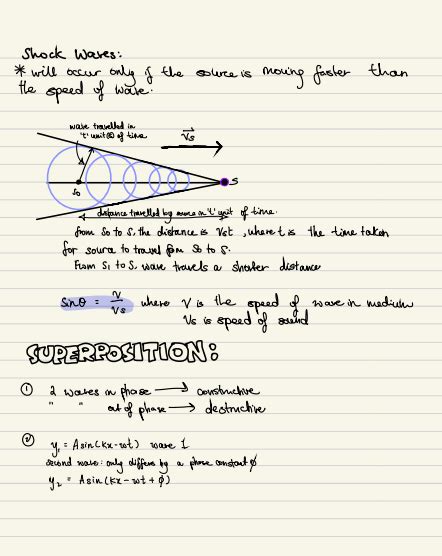 Shock Waves:
* will occur only if the source is moving faster than
the speed of wave.
wave travelled in
't' unit(s) of time
Vs
So
S
distance travelled by source in 't' unit of time.
from So to S, the distance is Vst, where t is the time taken
for source to travel from So to S.
From S1 to S, wave travels a shorter distance
sinθ = V/Vs where V is the speed of wave in medium
Vs is speed of sound
SUPERPOSITION:
① 2 waves in phase → constructive
" " out of phase → destructive
② y1 = Asin(kx-wt) wave 1
second wave: only differs by a phase constant φ
y2 = Asin(kx - wt + φ)